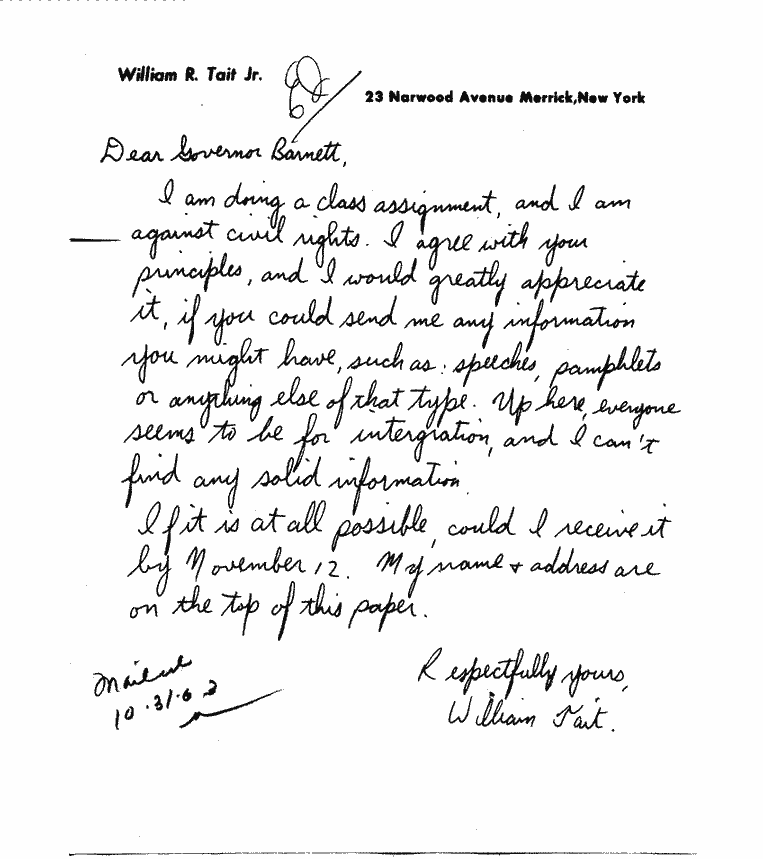 William R. Tait Jr.
23 Narwood Avenue Merrick, New York
Dear Governor Barnett,
I am doing a class assignment, and I am
against civil rights. I agree with your
principles, and I would greatly appreciate
it, if you could send me any information
you might have, such as: speeches, pamphlets
or anything else of that type. Up here, everyone
seems to be for intergration, and I can't
find any solid information.
If it is at all possible, could I receive it
by November 12. My name + address are
on the top of this paper.
Respectfully yours,
William Tait.
Mailed
10.31.62